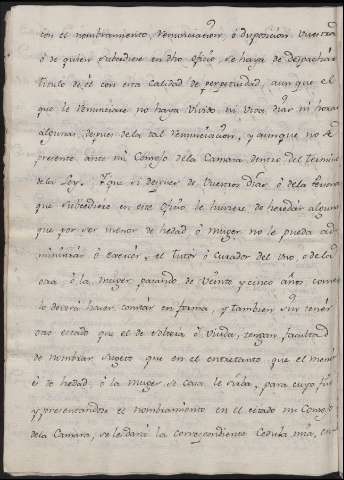 con el nombramiento, renunciacion, ó disposicion vuestra
ó de quien subcediere en dho oficio, se haya de despachar
titulo de él con esta calidad de perpetuidad, aunque el
que le renunciare no haya vivido ni viva dias ni horas
algunas despues de la tal renunciacion, y aunque no se
presente ante mi Consejo de la Camara dentro del termino
de la Ley. Y que si despues de vuestros dias, ó de la persona
que subcediere en este oficio le huviere de heredar alguno
que por ser menor de hedad ó muger no le pueda ad-
ministrar ó exercer, el tutor ó curador del uno, ó de los
ó la muger, pasando de veinte y cinco años, como
lo deverá hacer constar en forma, y tambien sin tener
otro estado que el de soltera ó viuda, tengan facultad
de nombrar sugeto que en el entretanto que el menor
es de hedad, ó la muger se casa, le sirva, para cuyo fin
y presentandose el nombramiento en el mi Consejo
de la Camara, se le dará la correspondiente Cedula mia, en